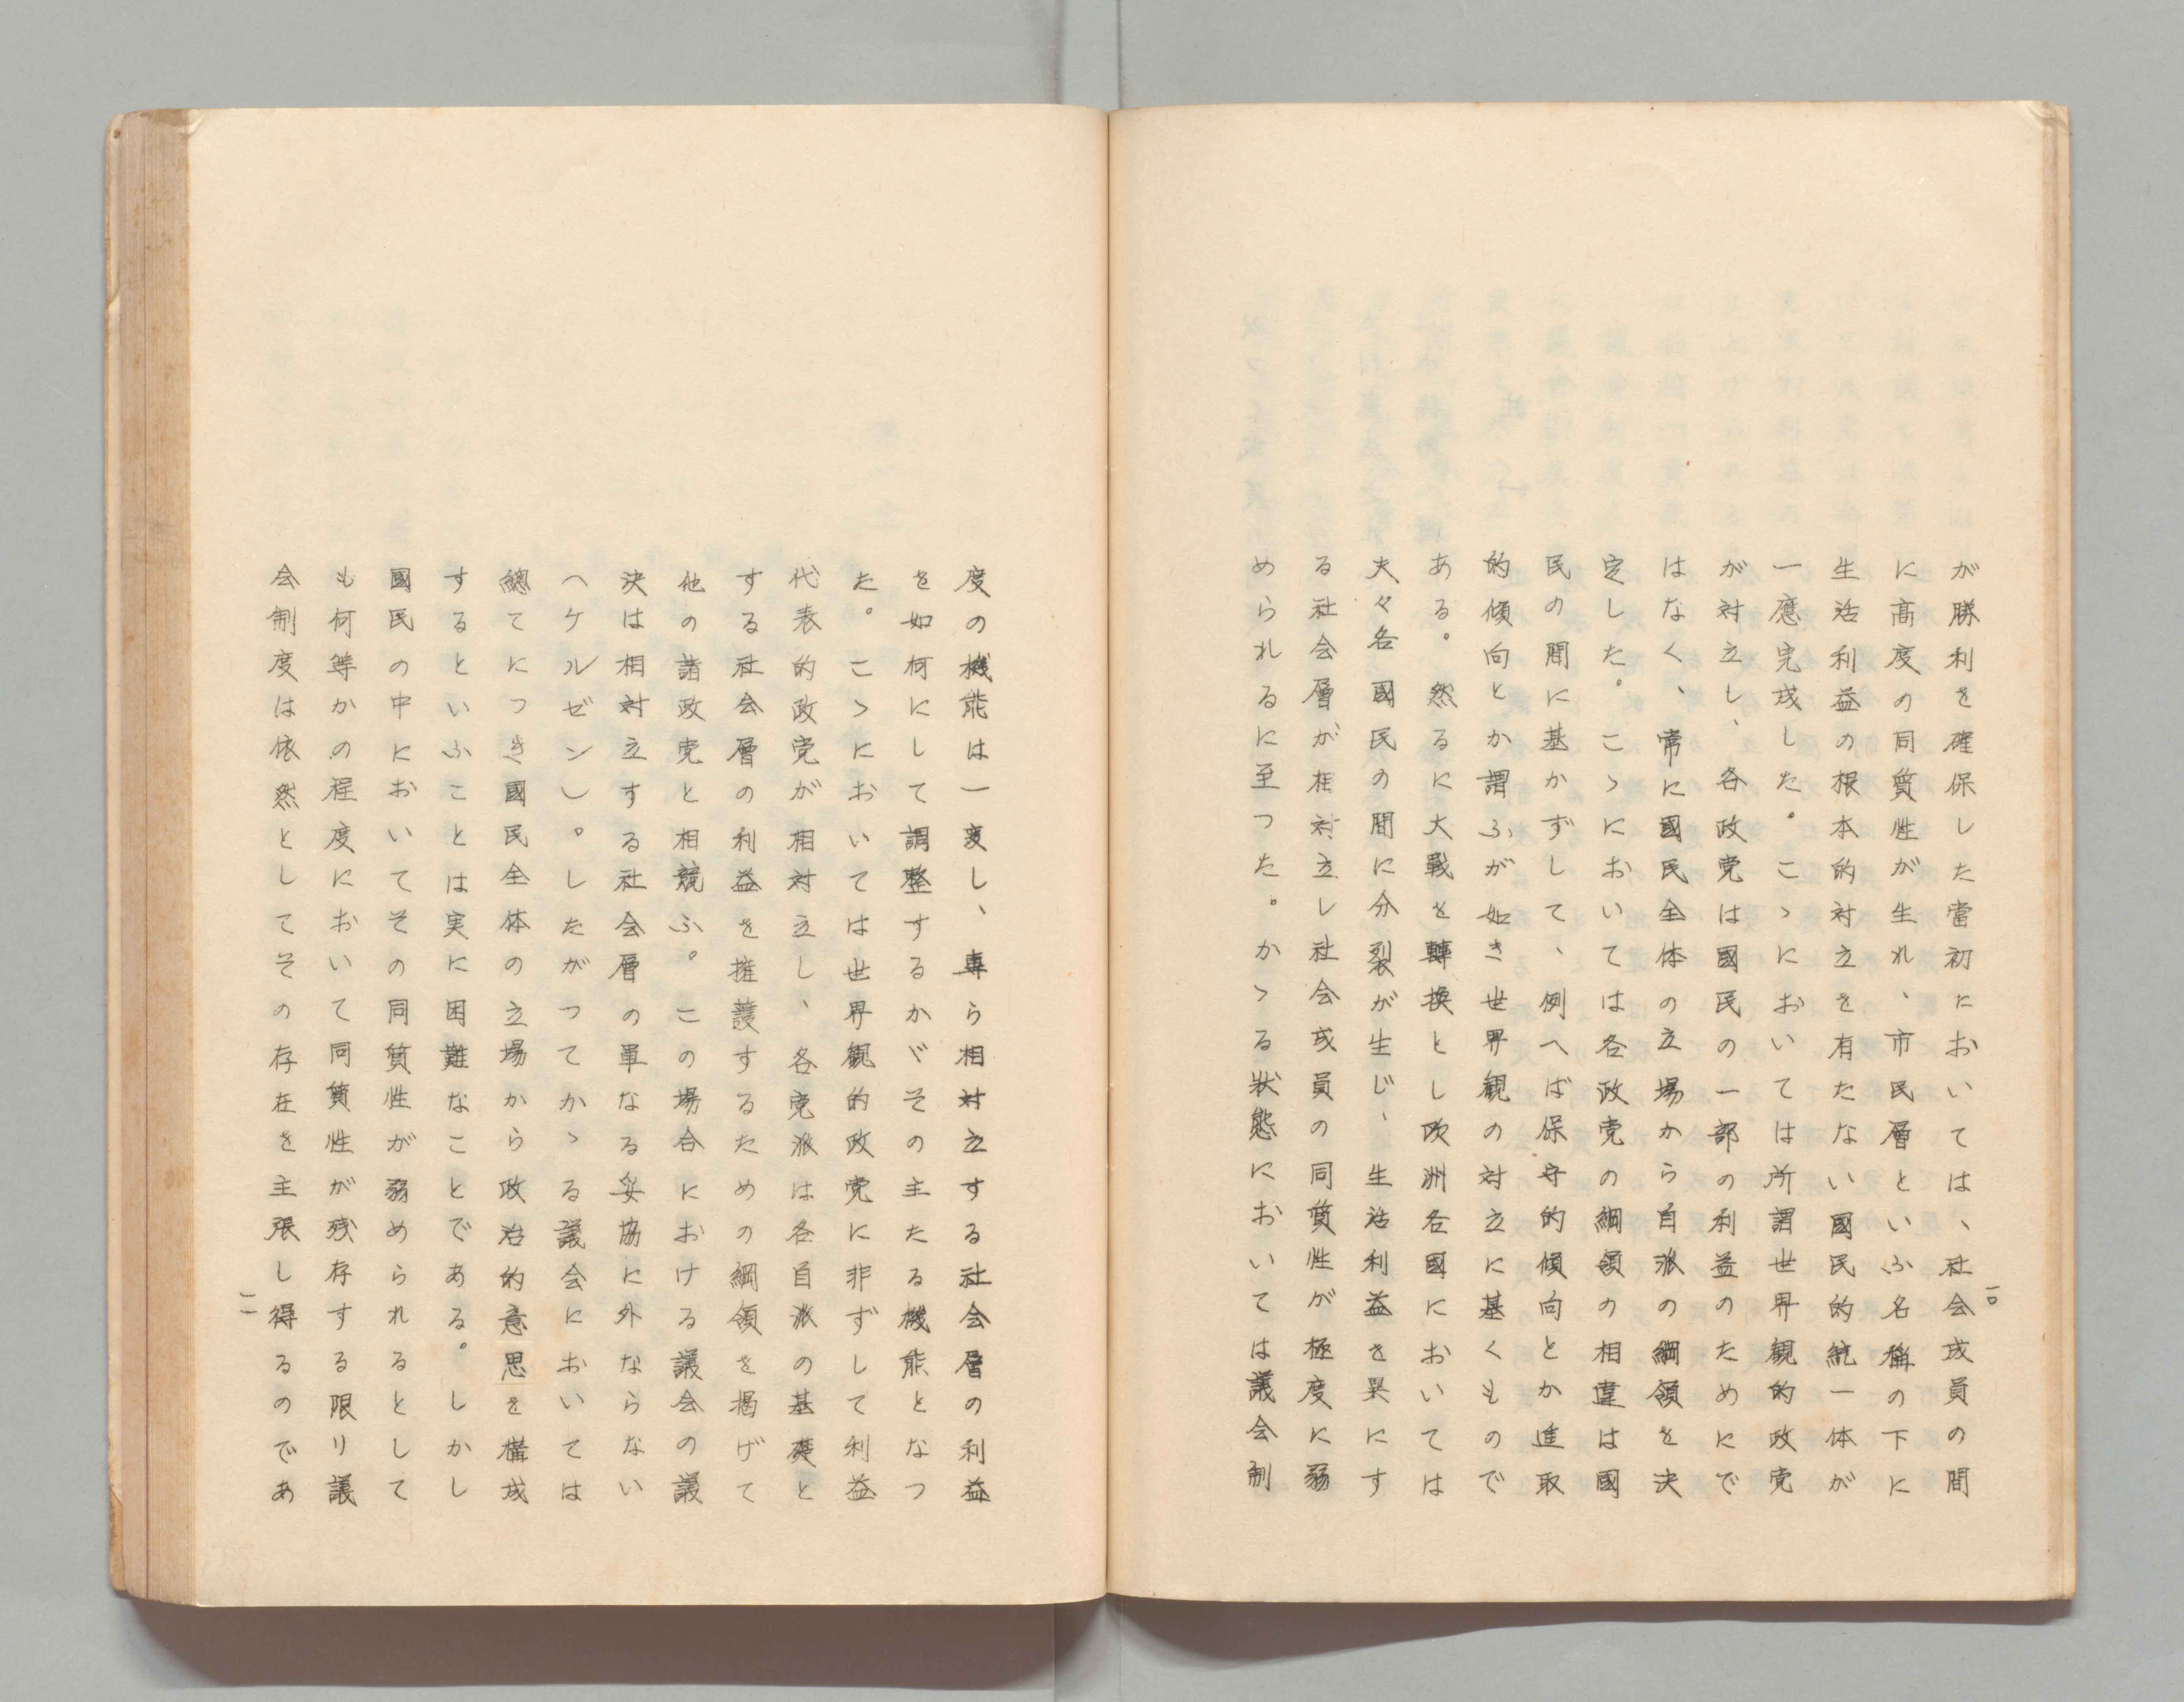 が勝利を確保した當初においては、社会成員の間
に高度の同質性が生れ、市民層といふ名稱の下に
生活利益の根本的対立を有たない國民的統一体が
一應完成した。こゝにおいては所謂世界観的政党
が対立し、各政党は國民の一部の利益のためにで
はなく、常に國民全体の立場から自派の綱領を決
定した。こゝにおいては各政党の綱領の相違は國
民の間に基かずして、例へば保守的傾向とか進取
的傾向とか謂ふが如き世界観の対立に基くもので
ある。然るに大戰を轉換とし欧洲各國においては
夫々各國民の間に分裂が生じ、生活利益を異にす
る社会層が相対立し社会成員の同質性が極度に弱
められるに至つた。かゝる狀態においては議会制
一〇
度の機能は一変し、専ら相対立する社会層の利益
を如何にして調整するかゞその主たる機能となつ
た。こゝにおいては世界観的政党に非ずして利益
代表的政党が相対立し、各党派は各自派の基礎と
する社会層の利益を擁護するための綱領を揭げて
他の諸政党と相競ふ。この場合における議会の議
決は相対立する社会層の單なる妥協に外ならない
（ケルゼン）。したがつてかゝる議会においては
總てにつき國民全体の立場から政治的意思を構成
するといふことは実に困難なことである。しかし
國民の中においてその同質性が弱められるとして
も何等かの程度において同質性が残存する限り議
会制度は依然としてその存在を主張し得るのであ
一一